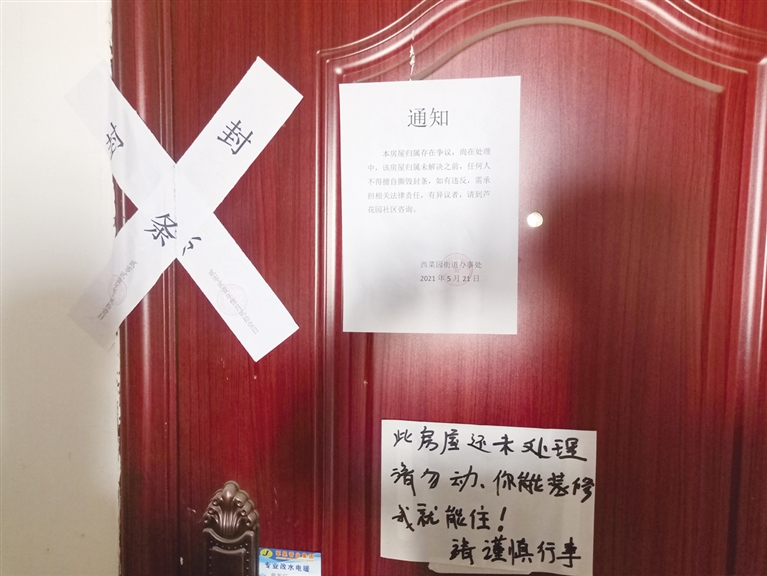 封
封
条
通知
本房屋归属存在争议，现在处理
中，该房屋归属未解决之前，任何人
不得擅自撕毁封条，如有违反，需承
担相关法律责任，有异议者，请到芦
花园社区咨询。
西菜园街道办事处
2021年5月21日
此房屋还未处理
请勿动、你能装修
我就能住！
请谨慎行事
专业改水电暖